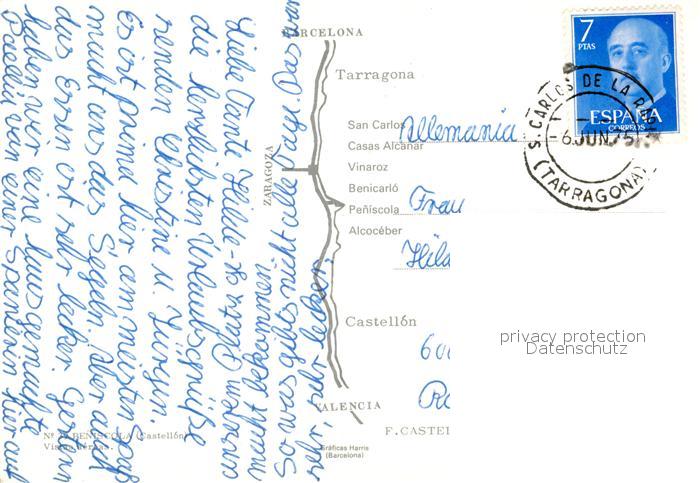 Liebe Tante Hilde – es 
die herzlichsten Urlaubsgrüße
senden Christine u. Jürgen.
Es ist prima hier am meisten Spaß
macht uns das Segeln. Aber auch
das Essen ist sehr lecker. Gestern
haben wir eine hausgemachte
Paella von einer Spanierin hier auf
bekommen. Das war
So was gibts nicht alle Tage.
sehr, sehr lecker.
BARCELONA
Tarragona
San Carlos
Casas Alcanar
Vinaroz
Benicarló
Peñíscola
Alcocéber
ZARAGOZA
Castellón
VALENCIA
F. CASTEL
Nº PEÑISCOLA (Castellón)
Vista aérea.
Gráficas Harris
(Barcelona)
7
PTAS
ESPAÑA
CORREOS
S. CARLOS DE LA RAP
6 JUN. 75
(TARRAGONA)
Allemania
Frau
Hild
600
privacy protection
Datenschutz